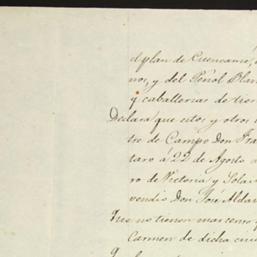 el plan de Cuencamé,
nos, y del Peñol Blan
y caballerias de tier
Declara que estos y otros
tre de Campo Don Fra
taro á 22 de Agosto
ro de Victoria y Sola
vendio Don José Alda
no tienen mas
Carmen de dicha